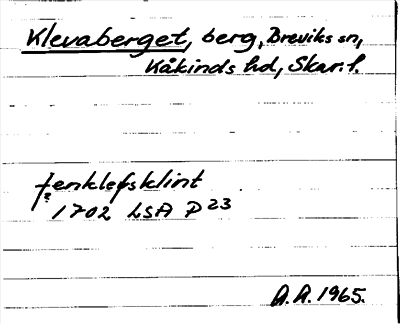 Klevaberget, berg, Breviks sn,
Kåkinds hd, Skar. l.
fenklefsklint
?
1702 LSA P 23
A.A. 1965.